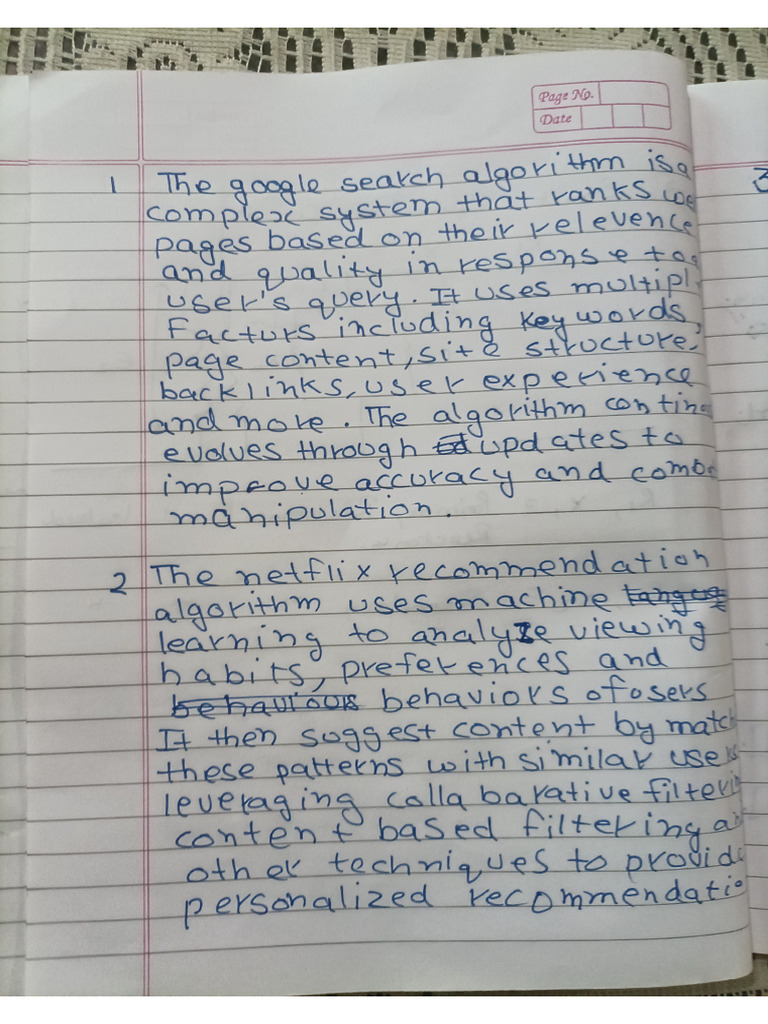 Page No.
Date
1 The google search algorithm is a
complex system that ranks we
pages based on their relevence
and quality in response to a
user's query. It uses multipl
Facturs including keywords,
page content, site structure,
backlinks, user experience
and more. The algorithm contin
evolves through updates to
improve accuracy and comb
manipulation.
2 The netflix recommendation
algorithm uses machine
learning to analyze viewing
habits, preferences and
behaviours behaviors of users
It then suggest content by match
these patterns with similar users
leveraging collabarative filterin
content based filtering an
other techniques to provide
personalized recommendatio
3